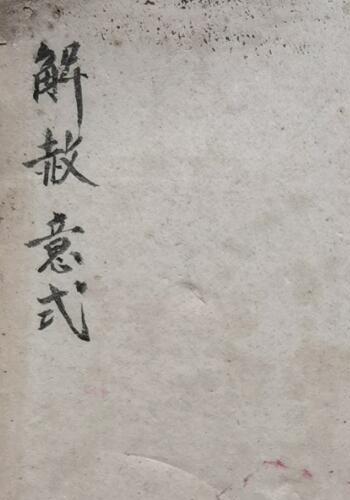 解赦意式